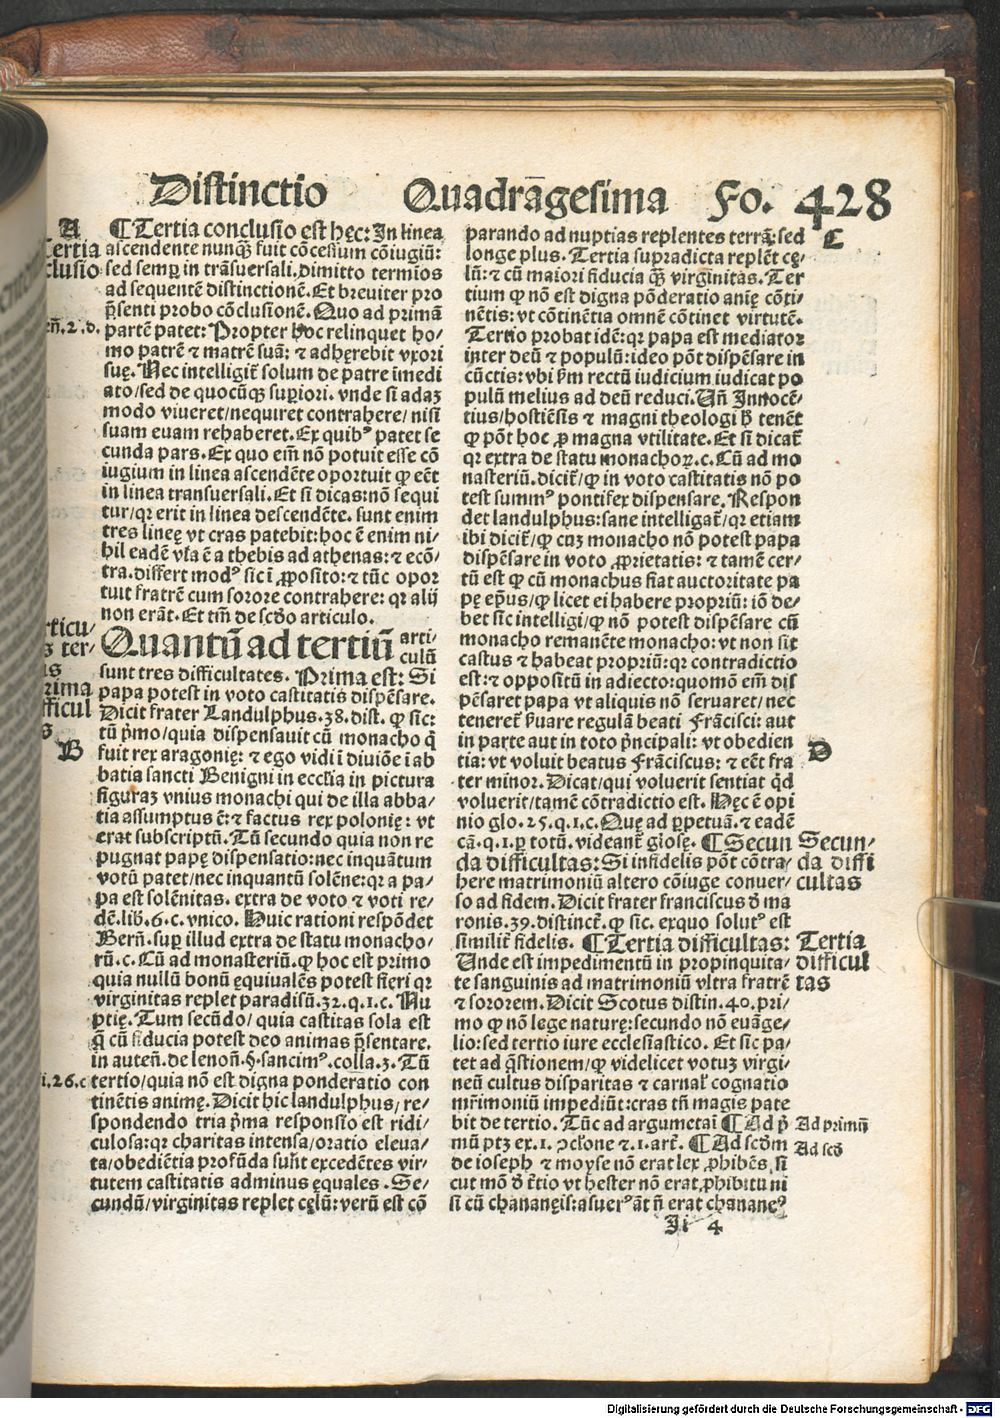 Distinctio Quadrāgesima Fo. 428
A
Tertia
clusio
¶ Tertia conclusio est hęc: In linea
ascendente nunqͣ fuit cōcessum cōiugiū:
sed semp̱ in trāsuersali. dimitto termios
ad sequentē distinctionē. Et breuiter pro
p̄senti probo cōclusionē. Quo ad primā
partē patet: Propter hoc relinquet ho/
mo patrē ⁊ matrē suā: ⁊ adhęrebit vxori
suę. Nec intelligit̄ solum de patre īmedi
ato/sed de quocūqꝫ sup̱iori. vnde si adaꝫ
modo viueret/nequiret contrahere/ nisi
suam euam rehaberet. Ex quibꝰ patet se
cunda pars. Ex quo em̄ nō potuit esse cō
iugium in linea ascendēte oportuit ꝙ eēt
in linea transuersali. Et si dicas: nō sequi
tur/qꝛ erit in linea descendēte. sunt enim
tres lineę vt cras patebit: hoc ē enim ni/
hil eadē via ē a thebis ad athenas: ⁊ ecō/
tra. differt modꝰ sic ī ꝓposito: ⁊ tūc opor
tuit fratrē cum sorore contrahere: qꝛ alij
non erāt. Et tm̄ de scd̄o articulo.
Quantū ad tertiū arti/
culū
sunt tres difficultates. Prima est: Si
papa potest in voto castitatis dispēsare.
Dicit frater Landulphus. 38. dist. ꝙ sic:
tū p̄mo/quia dispensauit cū monacho q̄
fuit rex aragonię: ⁊ ego vidi ī diuiōe ī ab
batia sancti Benigni in ecclīa in pictura
figuraꝫ vnius monachi qui de illa abba/
tia assumptus ē: ⁊ factus rex polonię: vt
erat subscriptū. Tū secundo quia non re
pugnat papę dispensatio: nec inquātum
votū patet/nec inquantū solēne: qꝛ a pa/
pa est solēnitas. extra de voto ⁊ voti re/
dē. lib. 6. c. vnico. Huic rationi respōdet
Berñ. sup̱ illud extra de statu monacho/
rū. c. Cū ad monasteriū. ꝙ hoc est primo
quia nullū bonū ęquiualēs potest fieri qꝛ
virginitas replet paradisū. 32. q. 1. c. Nu
ptię. Tum secūdo/ quia castitas sola est
q̄ cū fiducia potest deo animas p̄sentare.
in auteñ. de lenoñ. §. sancimꝰ. colla. 3. Tū
tertio/quia nō est digna ponderatio con
tinētis animę. Dicit hic landulphus/ re/
spondendo tria p̄ma responsio est ridi/
culosa: qꝛ charitas intensa/oratio eleua/
ta/obediētia profūda sunt excedētes vir/
tutem castitatis adminus ęquales. Se/
cundū/virginitas replet cęlū: verū est cō
B
parando ad nuptias replentes terrā: sed
longe plus. Tertia supradicta replēt cę/
lū: ⁊ cū maiori fiducia qͣ̄ virginitas. Ter
tium ꝙ nō est digna pōderatio anię cōti/
nētis: vt cōtinētia omnē cōtinet virtutē.
Tertio probat idē: qꝛ papa est mediator
inter deū ⁊ populū: ideo pōt dispēsare in
cūctis: vbi sm̄ rectū iudicium iudicat po
pulū melius ad deū reduci. Uñ Innocē/
tius/hostiēsis ⁊ magni theologi h̄ tenēt
ꝙ pōt hoc ꝓ magna vtilitate. Et si dicat̄
qꝛ extra de statu monachoꝝ. c. Cū ad mo
nasteriū. dicit̄/ꝙ in voto castitatis nō po
test summꝰ pontifex dispensare. Respon
det landulphus: sane intelligat̄/qꝛ etiam
ibi dicit̄/ꝙ cuꝫ monacho nō potest papa
dispēsare in voto ꝓprietatis: ⁊ tamē cer/
tū est ꝙ cū monachus fiat auctoritate pa
pę ep̄us/ꝙ licet ei habere propriū: iō de/
bet sic intelligi/ꝙ nō potest dispēsare cū
monacho remanēte monacho: vt non sit
castus ⁊ habeat propriū: qꝛ contradictio
est: ⁊ oppositū in adiecto: quomō em̄ dis
pēsaret papa vt aliquis nō seruaret/ nec
teneret̄ p̄uare regulā beati Frācisci: aut
in parte aut in toto p̄ncipali: vt obedien
tia: vt voluit beatus Frāciscus: ⁊ eēt fra
ter minor. Dicat/qui voluerit sentiat qd̄
voluerit/tamē cōtradictio est. Hęc ē opi
nio glo. 25. q. 1. c. Quę ad p̱petuā. ⁊ eadē
cā. q. 1. p̱ totū. videant̄ glosę. ¶ Secun
da difficultas: Si infidelis pōt cōtra/
here matrimoniū altero cōiuge conuer/
so ad fidem. Dicit frater franciscus d̄ ma
ronis. 39. distinct̄. ꝙ sic. exquo solutꝰ est
similit̄ fidelis. ¶ Tertia difficultas:
Unde est impedimentū in propinquita/
te sanguinis ad matrimoniū vltra fratrē
⁊ sororem. Dicit Scotus distin. 40. pri/
mo ꝙ nō lege naturę: secundo nō euāge/
lio: sed tertio iure ecclesiastico. Et sic pa/
tet ad q̄stionem/ꝙ videlicet votuꝫ virgi/
neū cultus disparitas ⁊ carnal̄ cognatio
mr̄imoniū impediūt: cras tñ magis pate
bit de tertio. Tūc ad argumeta ¶ Ad p̄
mū ptꝫ ex. 1. ꝯclone ⁊. 1. art̄. ¶ Ad scd̄m
de ioseph ⁊ moyse nō erat lex ꝓhibēs, si
cut mō d̄ t̄tio vt hester nō erat ꝓhibitu ni
si cū chananęis: asuerꝰ āt ñ erat chananeꝰ
C
D
Secun/
da diffi
cultas
Tertia
difficul
tas
Ad primū
Ad scd̄
Ii 4
Digitalisierung gefördert durch die Deutsche Forschungsgemeinschaft - DFG